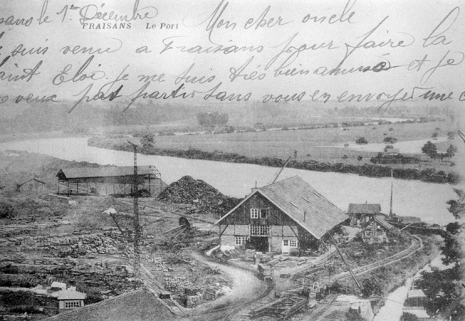 1er Décembre
FRAISANS Le Port
Mon cher oncle
suis venu a Fraisans pour faire la
Saint Eloi je me suis très bien amusé et je
veux pas partir sans vous en envoyer une c